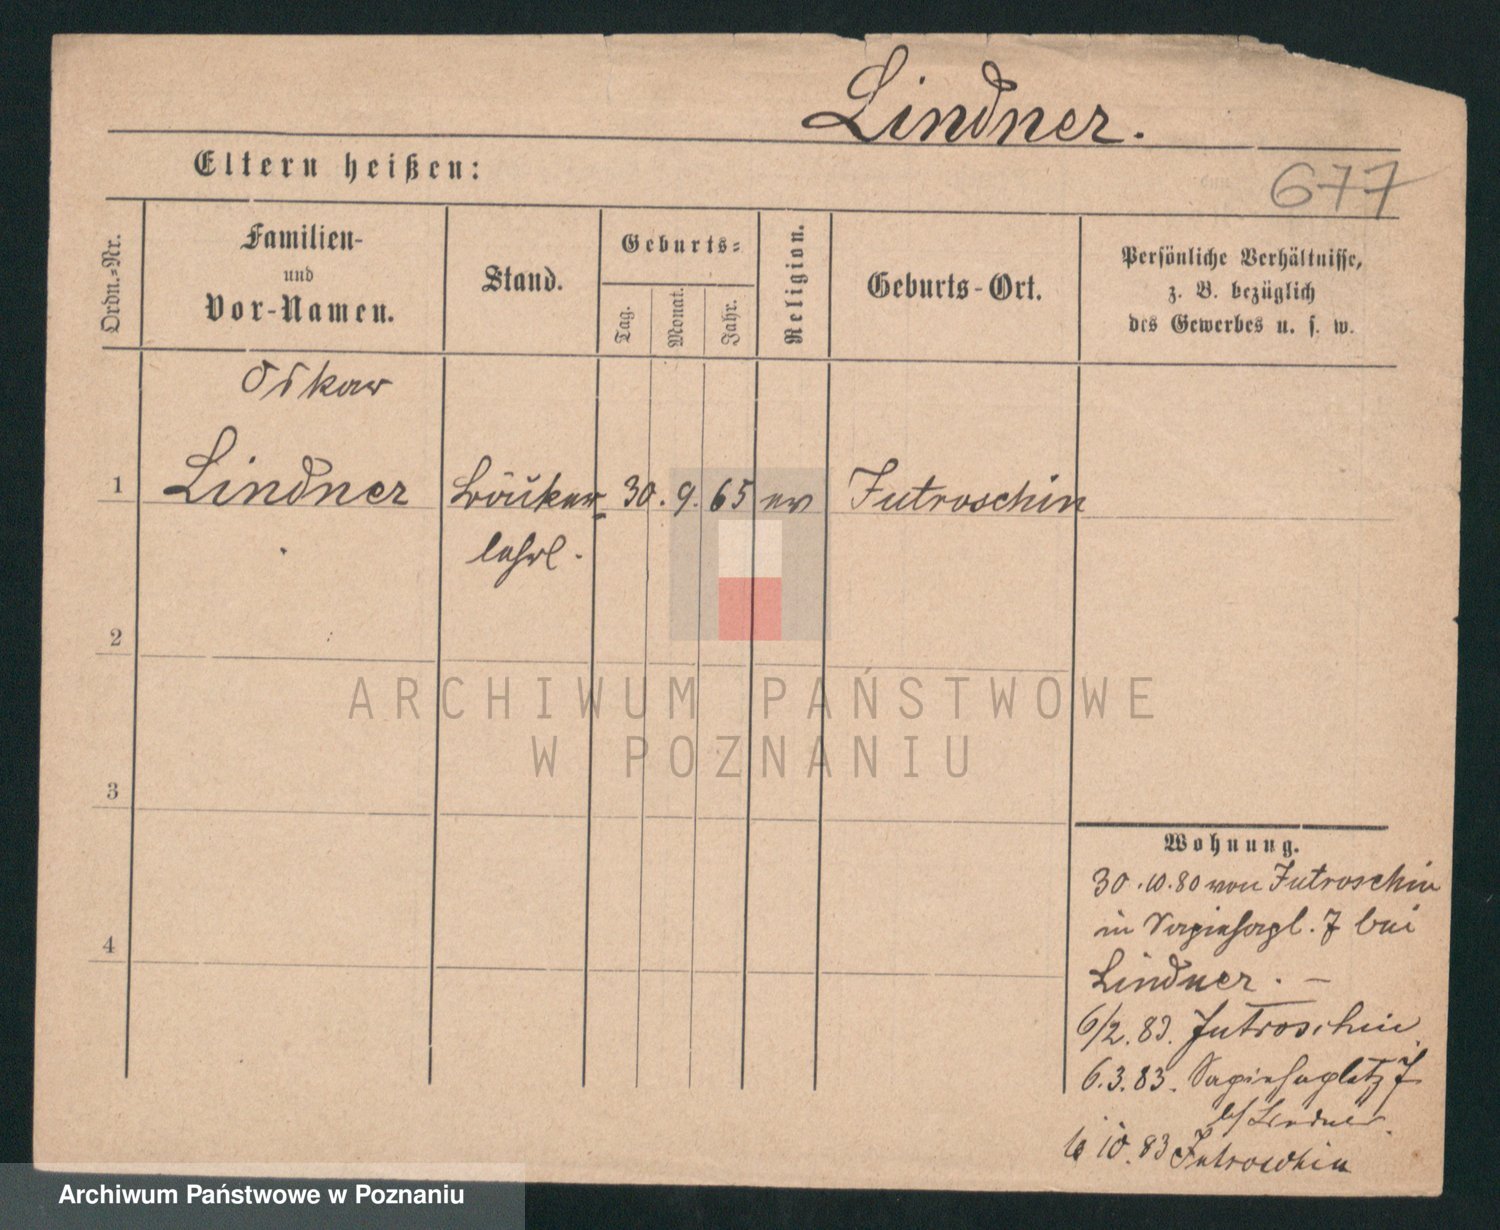 Lindner.
677
Eltern heißen:
Ordn.=Nr.
Familien-
und
Vor-Namen.
Stand.
Geburts=
Tag.
Monat.
Jahr.
Religion.
Geburts-Ort.
Persönliche Verhältnisse,
z. B. bezüglich
des Gewerbes u. s. w.
Oskar
1 Lindner 30. 9. 65 ev Jutroschin
lehrl.
2
3
4
ARCHIWUM PAŃSTWOWE
W POZNANIU
Wohnung.
30.10.80 von Jutroschin
in Sapiehapl. 7 bei
Lindner. –
6/2.83. Jutroschin
6.3.83. Sapiehaplatz 7
b/ Lindner.
10.83 Jutroschin
Archiwum Państwowe w Poznaniu